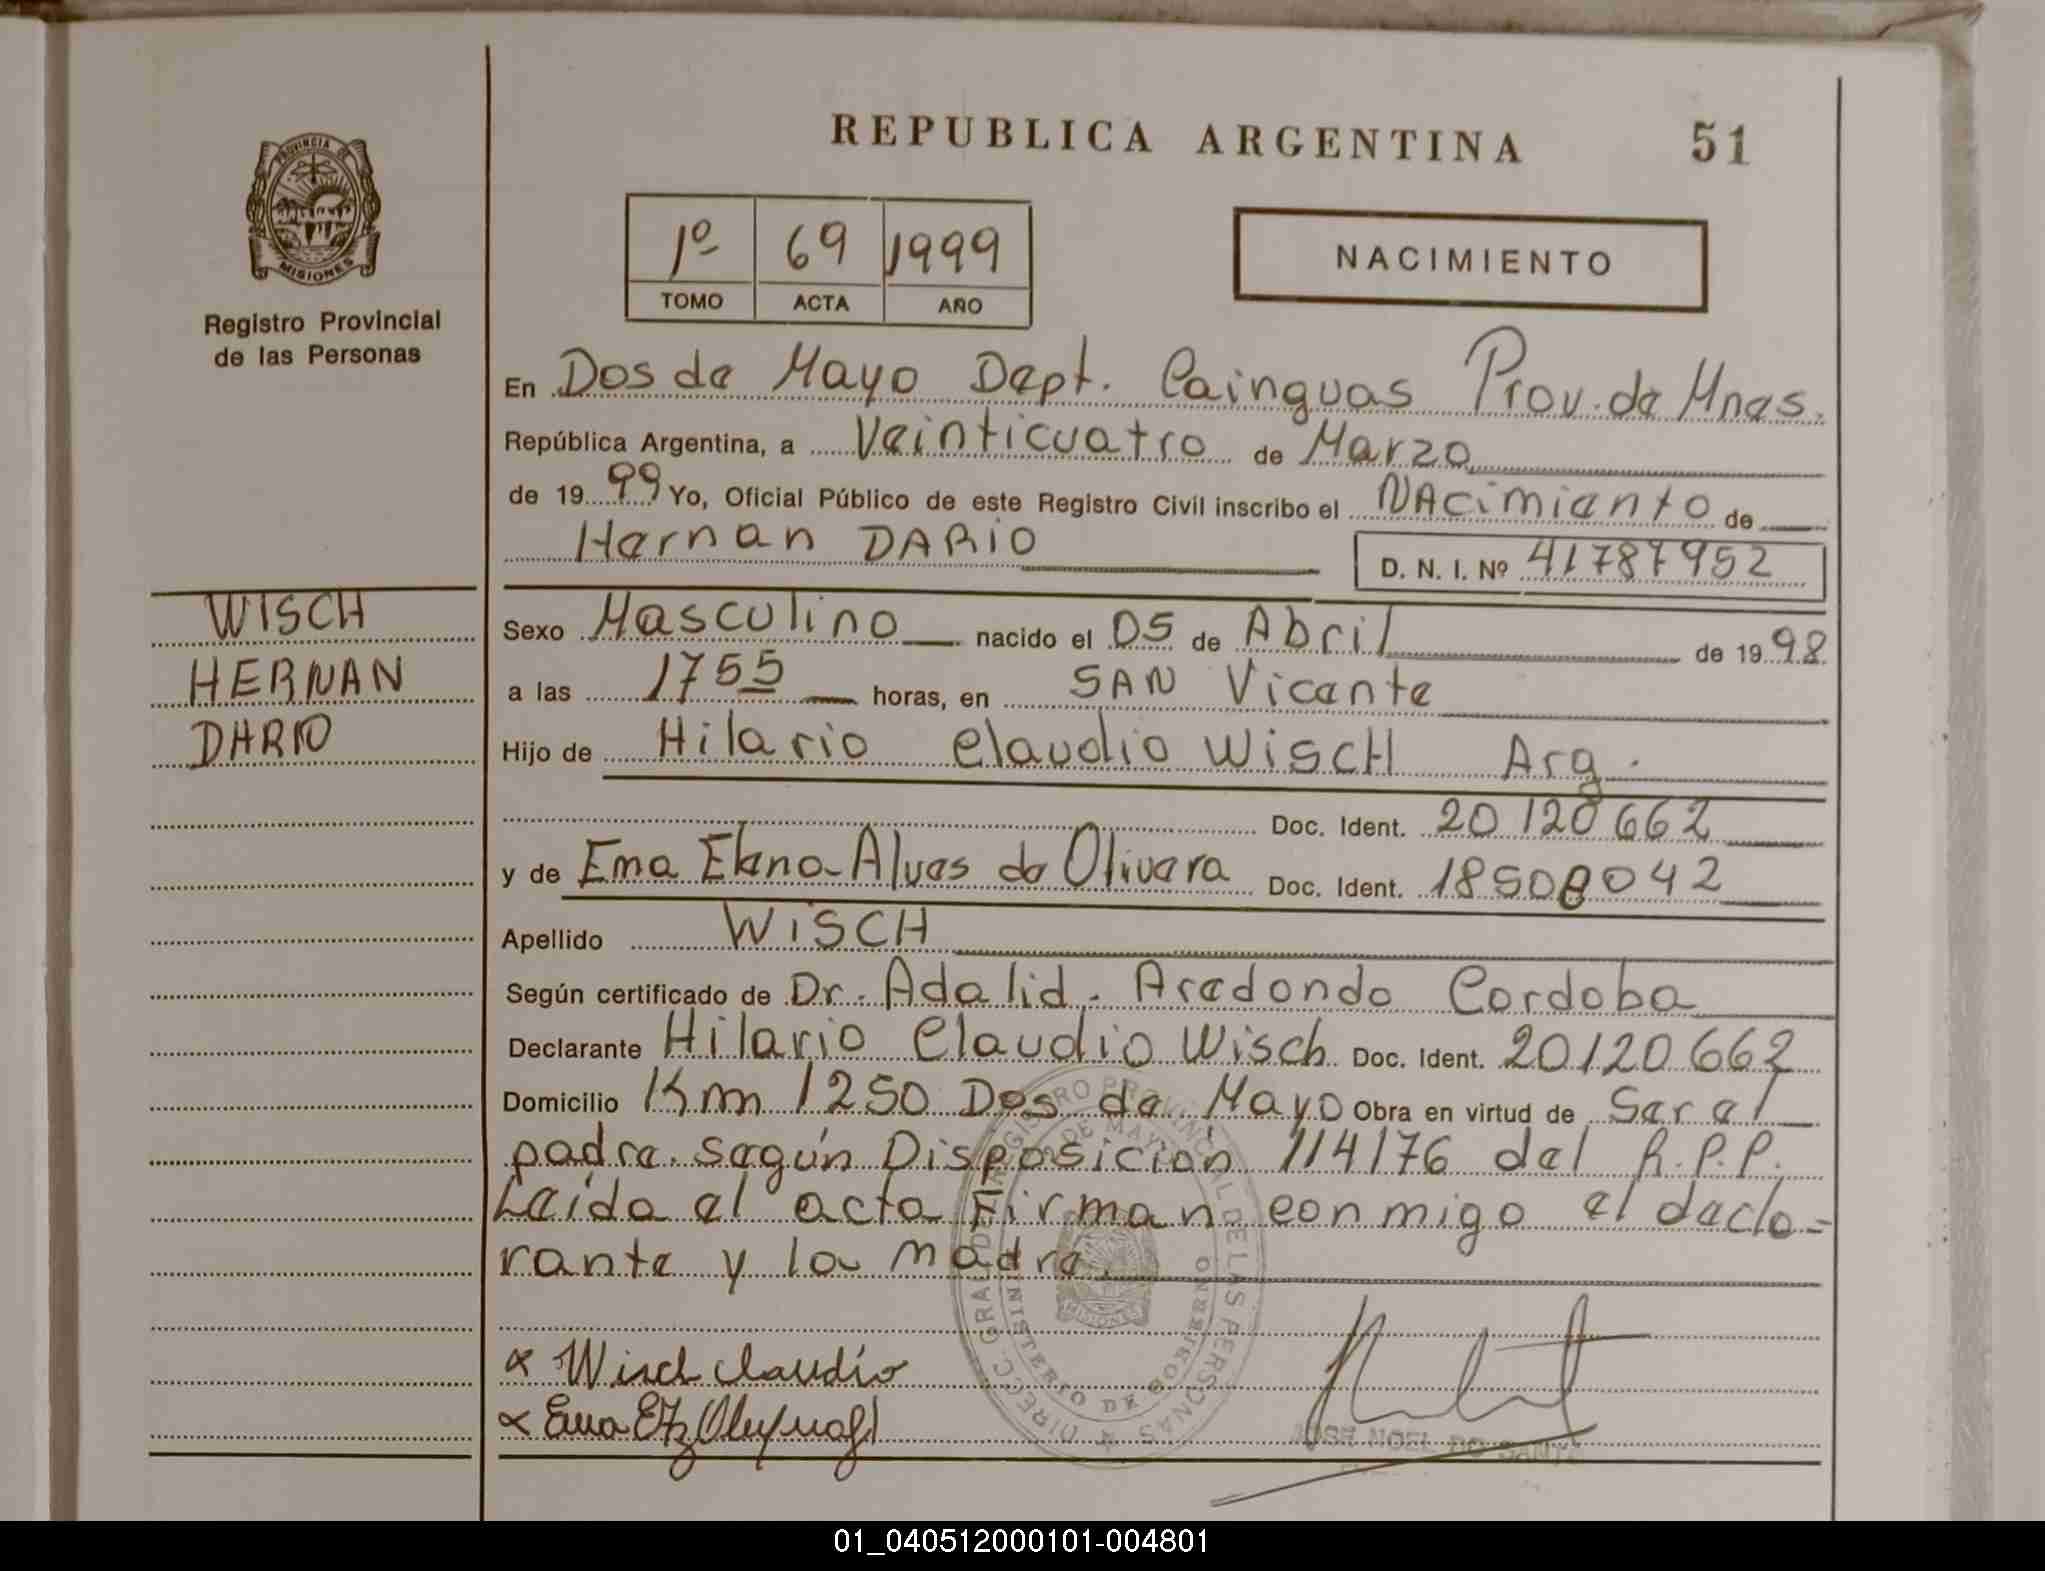 REPUBLICA ARGENTINA 51
PROVINCIA DE
MISIONES
Registro Provincial
de las Personas
1º 69 1999
TOMO ACTA AÑO
NACIMIENTO
En Dos de Mayo Dept. Cainguas Prov. de Mnes.
República Argentina, a Veinticuatro de Marzo
de 1999 Yo, Oficial Público de este Registro Civil inscribo el NAcimiento de
Hernan DARiO D. N. I. Nº 41787952
WISCH
HERNAN
DARIO
Sexo Masculino nacido el 05 de Abril de 1998
a las 1755 horas, en SAN Vicente
Hijo de Hilario Claudio WiSCH Arg.
Doc. Ident. 20120662
y de Ema Elena Alves de Olivera Doc. Ident. 18508042
Apellido WiSCH
Según certificado de Dr. Adalid. Aredondo Cordoba
Declarante Hilario Claudio Wisch Doc. Ident. 20120662
Domicilio Km 1250 Dos de Mayo Obra en virtud de Ser el
padre. según Disposición 114176 del R.P.P.
Leida el acta Firman conmigo el decla=
rante y la madre.
DIRECC. GRAL. DEL REGISTRO PROVINCIAL DE LAS PERSONAS
2 DE MAYO
MINISTERIO DE GOBIERNO
MISIONES
Wisch Claudio
Ema
JOSE NOEL DO SANT
01_040512000101-004801